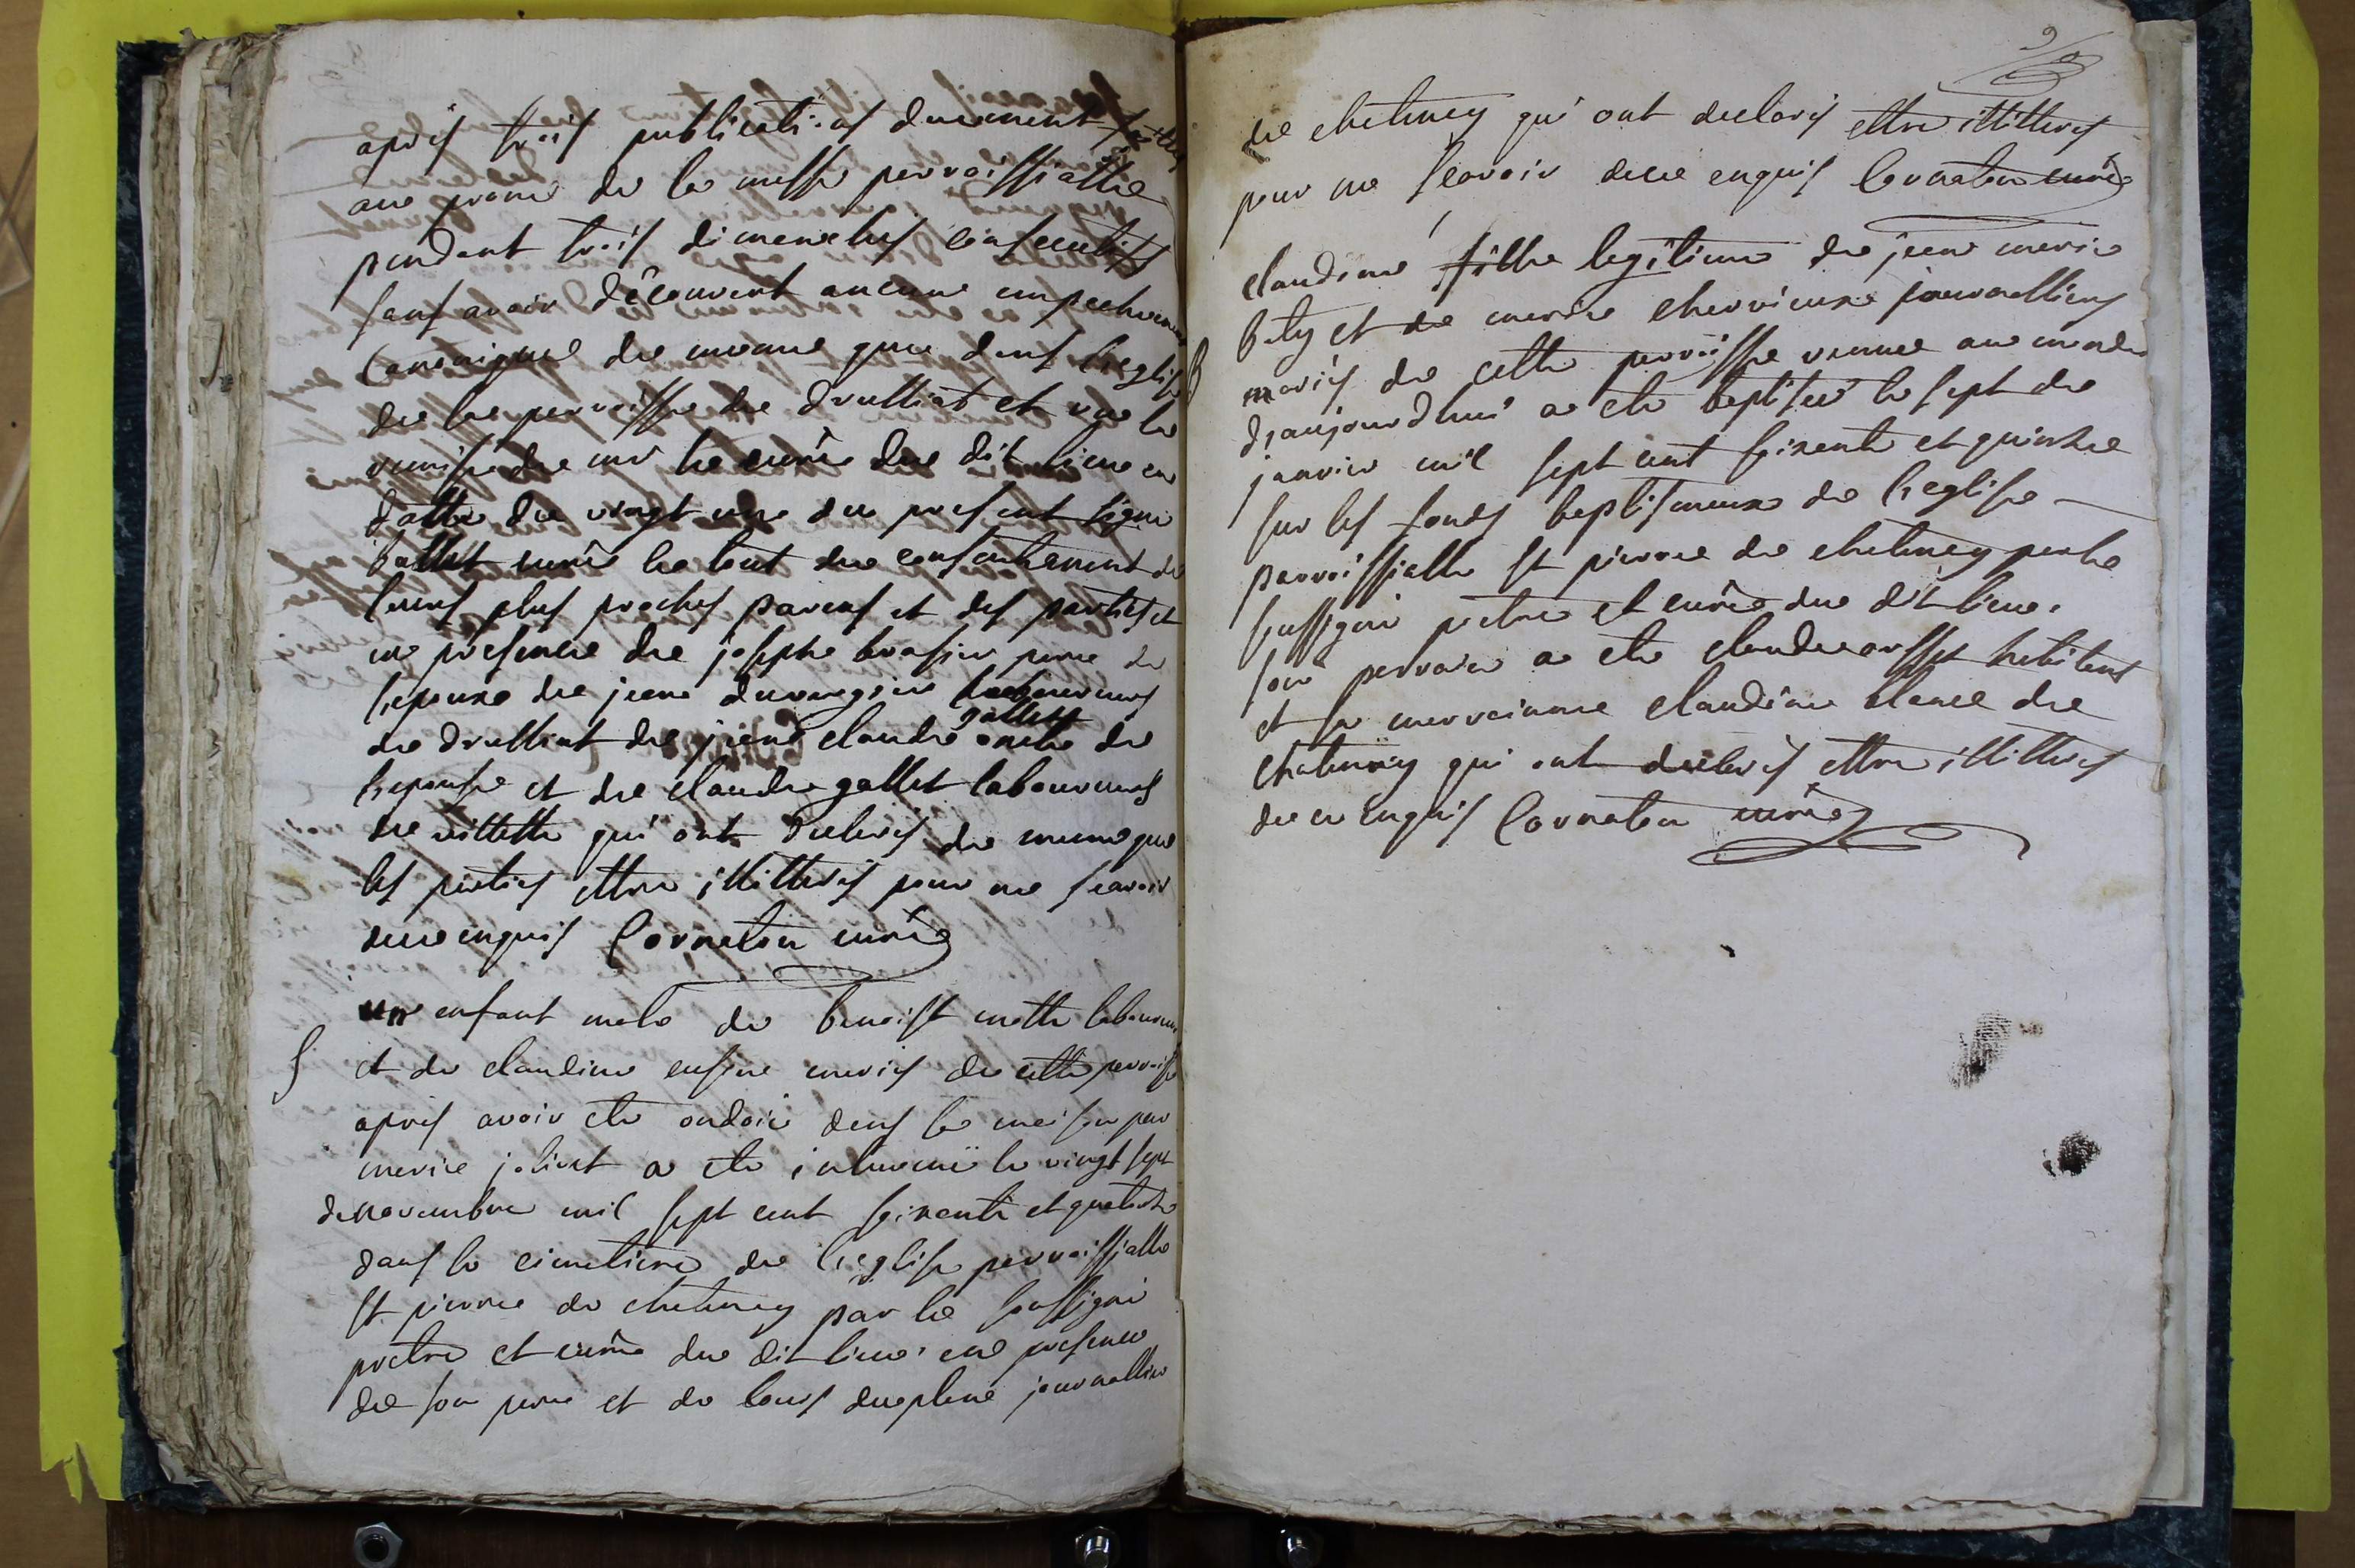 apres trois publications duement faittes
au prone de la messe parroissialle
pendant trois dimanches consecutifs
sans avoir découvert aucune empechement
canonique de meme que dans l'eglise
de la parroisse de druilliat et vue la
remise de mr le curé du dit lieu en
datte du vingt un du present signé
ballet curé le tout du consentement de
leurs plus proches parens et des parties et
en presence de joseph brasier pere de
l'epouxe de jean laboureurs
de druillat de jean claude gallet oncle de
l'epouse et de claude gallet laboureurs
de villette qui ont declarés de meme que
les parties ettre illitterés pour ne scavoir
de ce enquis Cornaton curé
un enfant male de benoist laboureur
S et de claudine mariés de cette parroisse
apres avoir ete ondoié dans la maison par
marie a ete inhumé le vingt sept
de novembre mil sept cent soixante et quatorze
dans le cimetiere de l'eglise parroissialle
st pierre de chatenay par le soussigné
pretre et curé du dit lieu en presence
de son pere et de louis journallier
de chatenay qui ont declarés ettre illitterés
pour ne scavoir de ce enquis Cornaton curé
claudine fille legitime de jean marie
bety et de marie chervieux journalliers
B mariés de cette parroisse venue au monde
d'aujourdhui a ete baptisée le sept de
janvier mil sept cent soixante et quinze
sur les fonds baptismeaux de l'eglise
parroissialle st pierre de chatenay par le
soussigné pretre et curé du dit lieu.
son parrain a ete claude habitant
et sa marrainne claudine de
chatenay qui ont declarés ettre illitterés
de ce enquis Cornaton curé